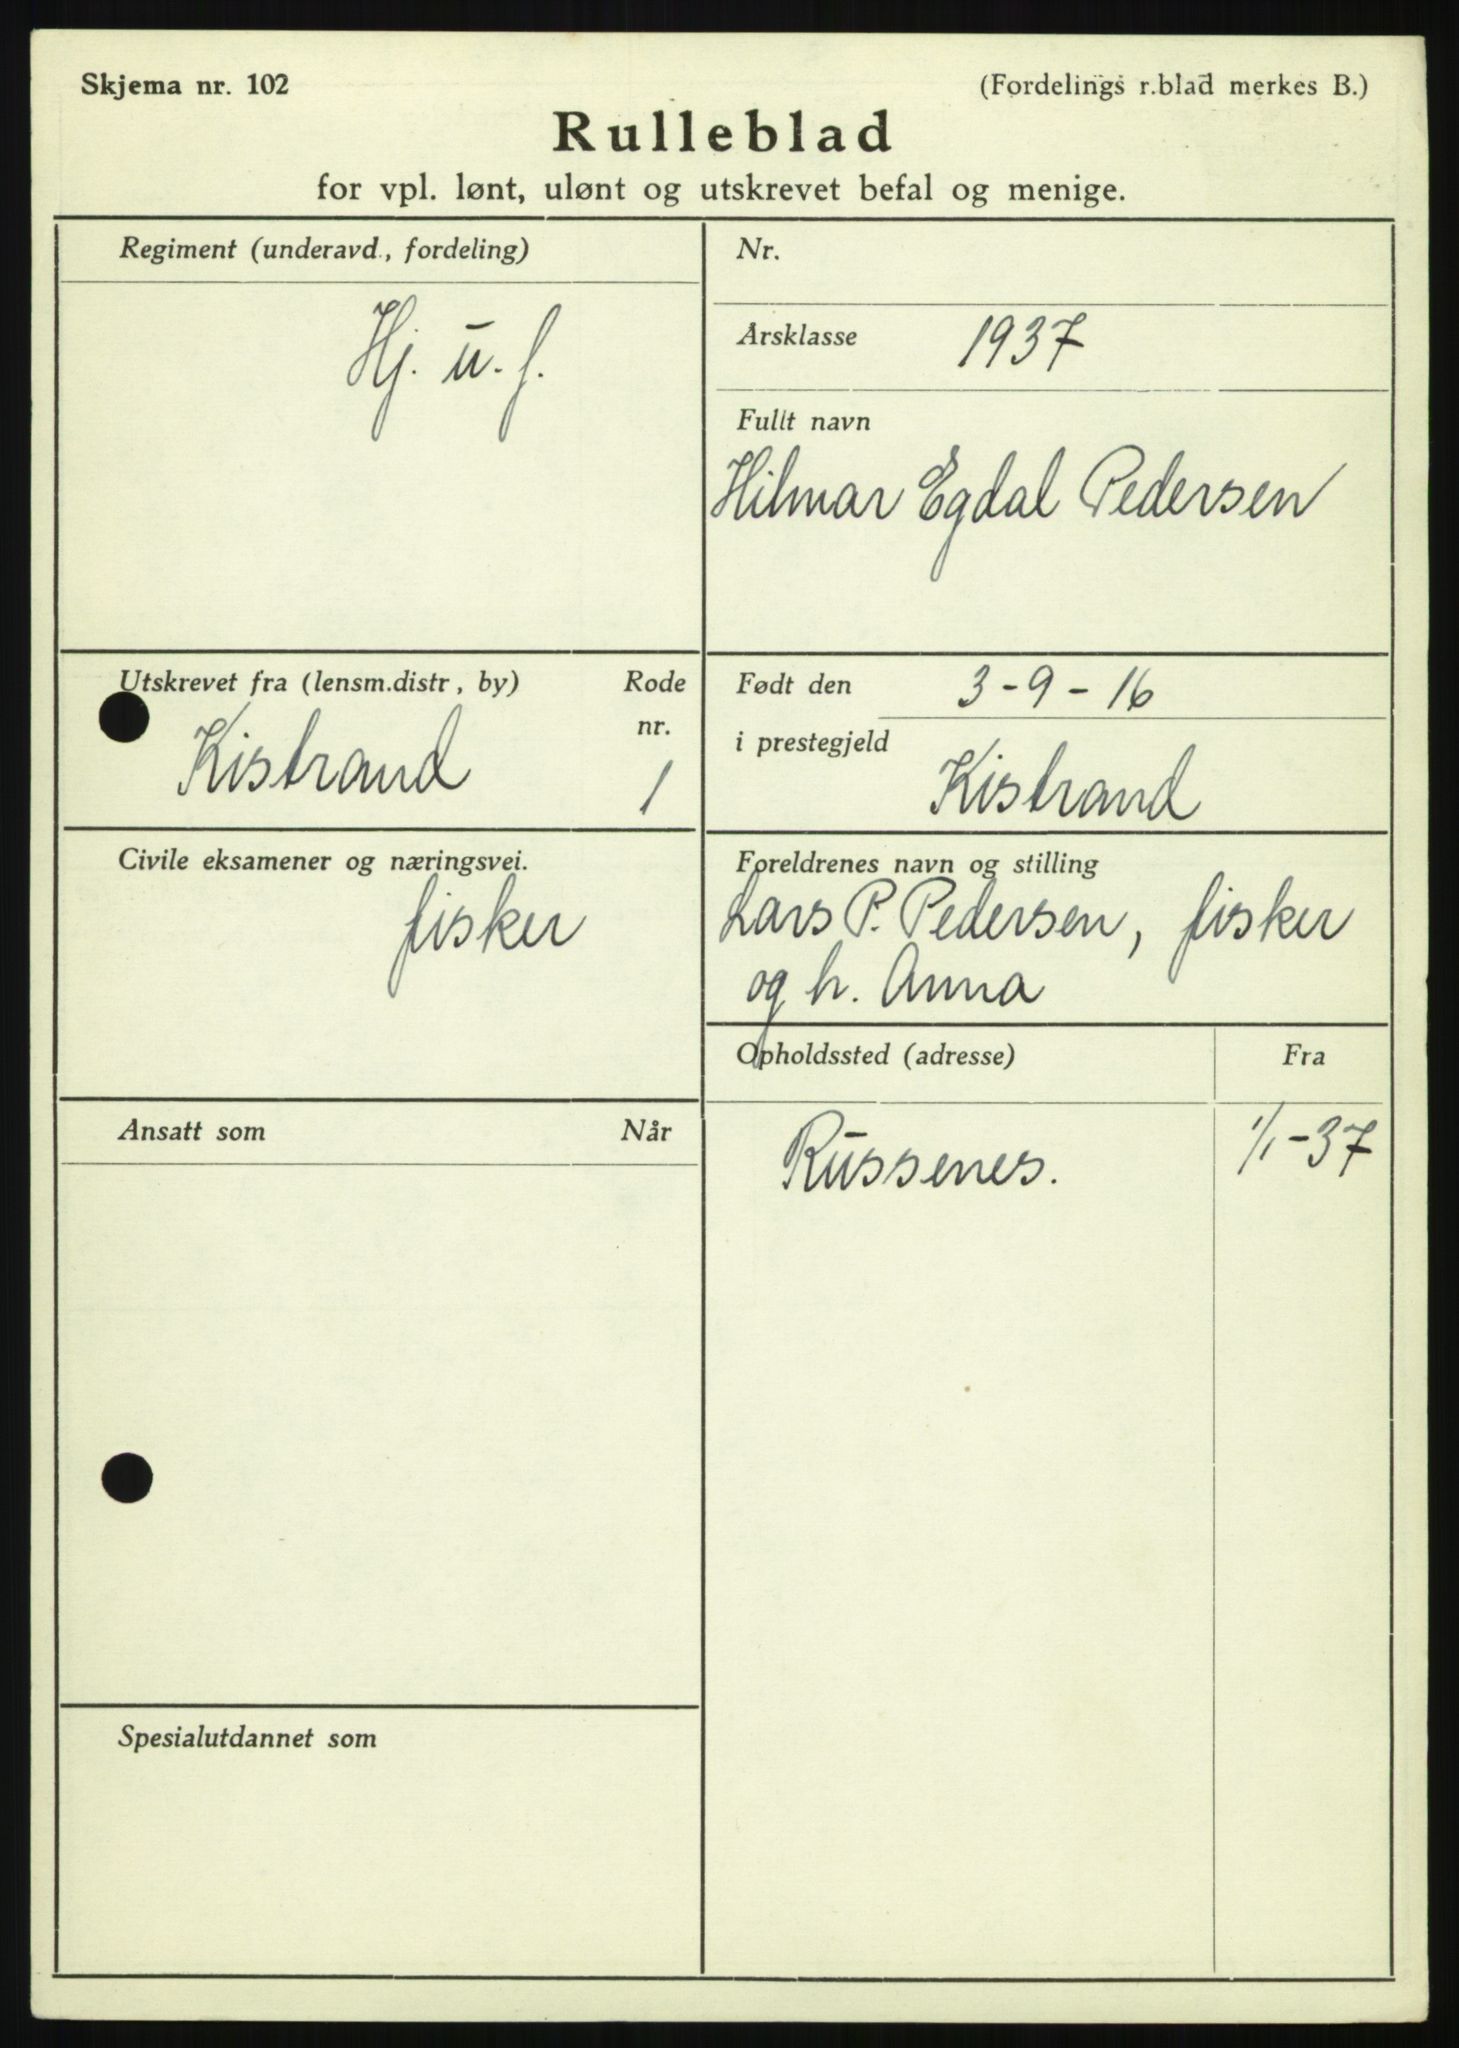 Skjema nr. 102
(Fordelings r.blad merkes B.)
Rulleblad
for vpl. lønt, ulønt og utskrevet befal og menige.
Regiment (underavd., fordeling)
Hj. u. f.
Nr.
Årsklasse 1937
Fullt navn
Hilmar Egdal Pedersen
Utskrevet fra (lensm.distr, by)
Rode
nr.
Kistrand
1
Født den 3-9-16
i prestegjeld
Kistrand
Civile eksamener og næringsvei.
fisker
Foreldrenes navn og stilling
Lars P. Pedersen, fisker
og h. Anna
Opholdssted (adresse)
Fra
Russenes.
1/1-37
Ansatt som
Når
Spesialutdannet som